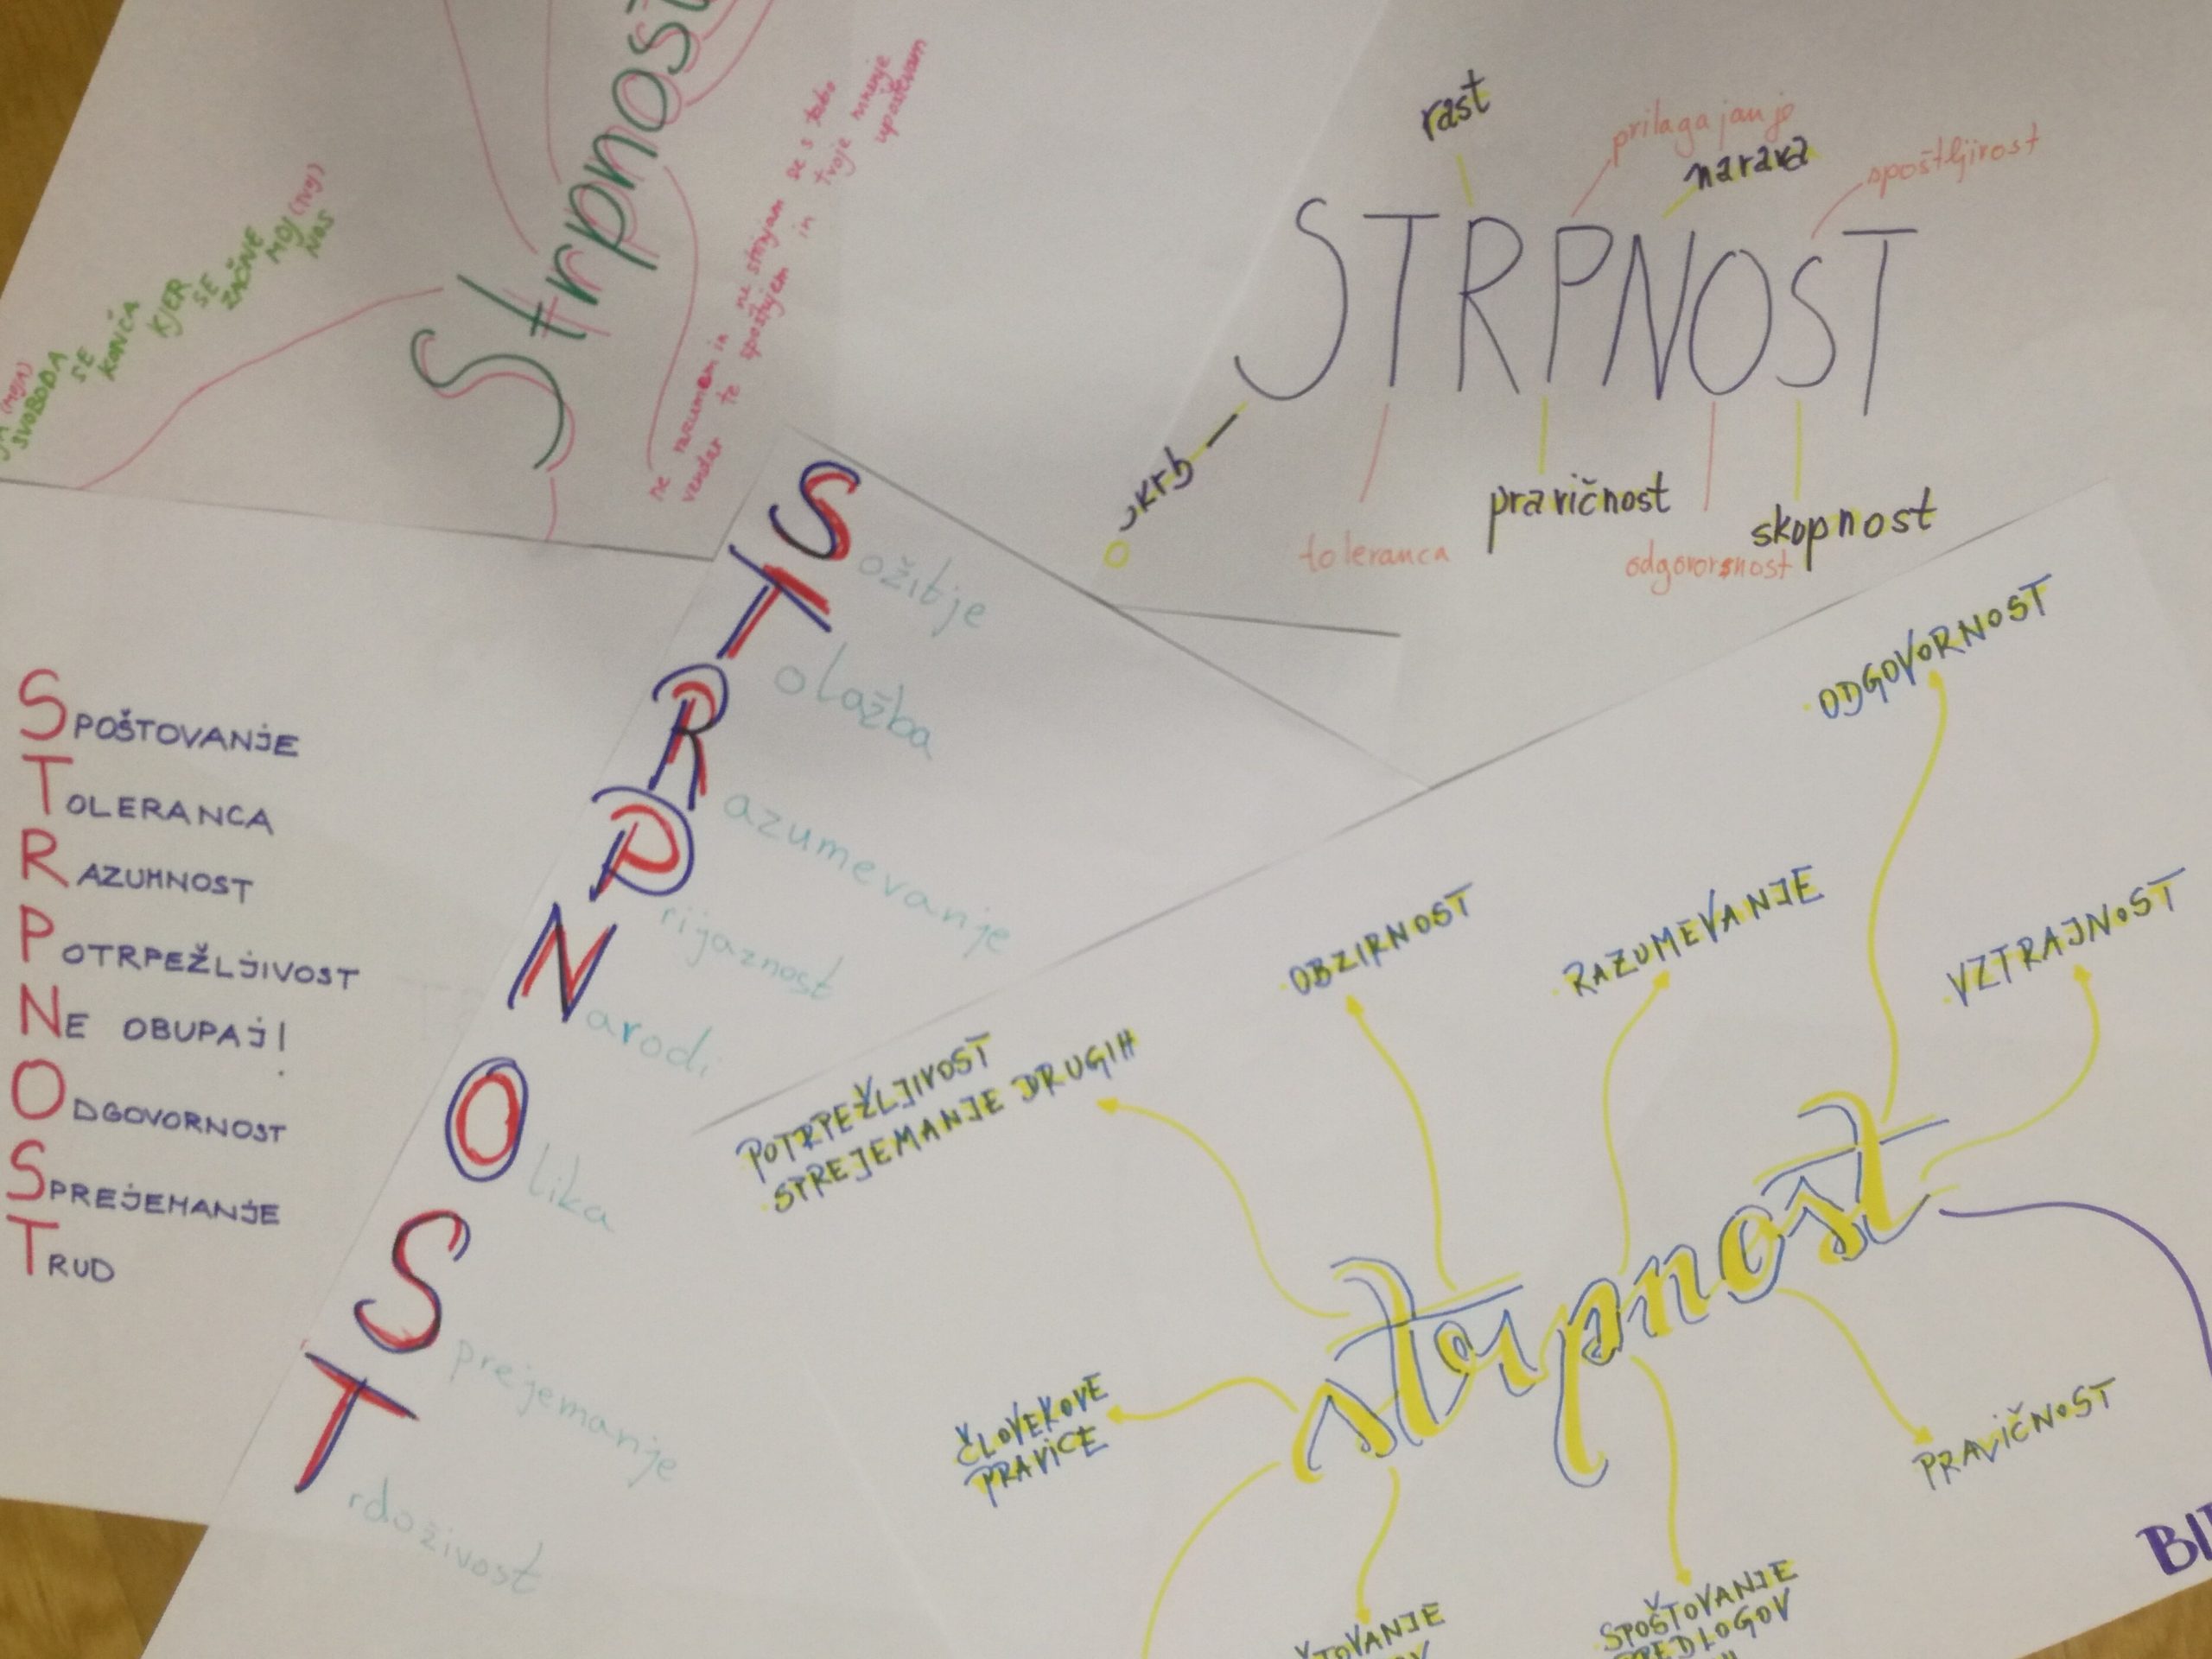 Strpnost
(MOJA)
SVOBODA
SE
KONČA
KJER
SE
ZAČNE
MOJ (TVOJ)
NOS
ne razumem in ne strinjam se s tabo
vendar te spoštujem in in tvoje mnenje
upoštevam
rast
prilagajanje
narava
spoštljivost
STRPNOST
skrb
toleranca
pravičnost
odgovorsnost
skopnost
SPOŠTOVANJE
TOLERANCA
RAZUMNOST
POTRPEŽLJIVOST
NE OBUPAJ!
ODGOVORNOST
SPREJEMANJE
TRUD
Sožitje
Tolažba
Razumevanje
Prijaznost
Narodi
Olika
Sprejemanje
Trdoživost
ODGOVORNOST
OBZIRNOST
RAZUMEVANJE
VZTRAJNOST
POTRPEŽLJIVOST
SPREJEMANJE DRUGIH
strpnost
ČLOVEKOVE
PRAVICE
PRAVIČNOST
ŠTOVANJE
SPOŠTOVANJE
PREDLOGOV